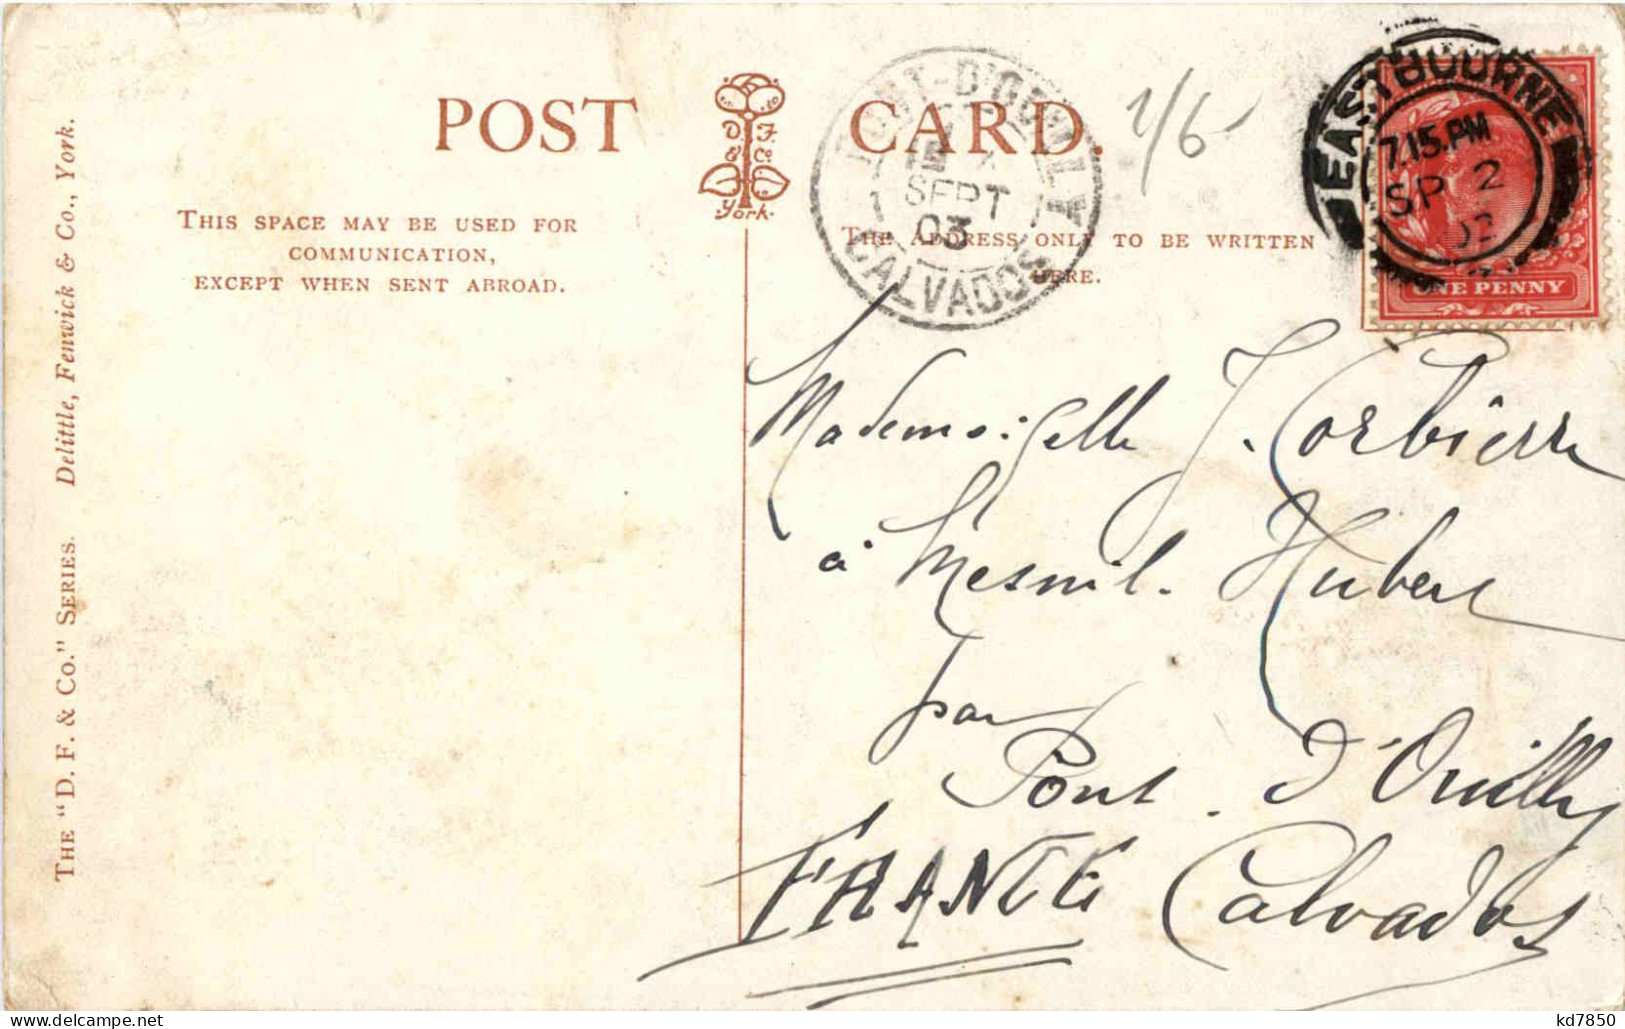 POST CARD.
D. F. & Co. York.
THIS SPACE MAY BE USED FOR
COMMUNICATION,
EXCEPT WHEN SENT ABROAD.
THE ADDRESS ONLY TO BE WRITTEN
HERE.
THE "D. F. & CO." SERIES. Delittle, Fenwick & Co., York.
PONT-D'OUILLY
15
SEPT
03
CALVADOS
1/6
EASTBOURNE
7.15.PM
SP 2
03
ONE PENNY
Mademoiselle J. Corbière
à Mesnil. Hubert
par
Pont. d'Ouilly
FRANCE Calvados
kd7850